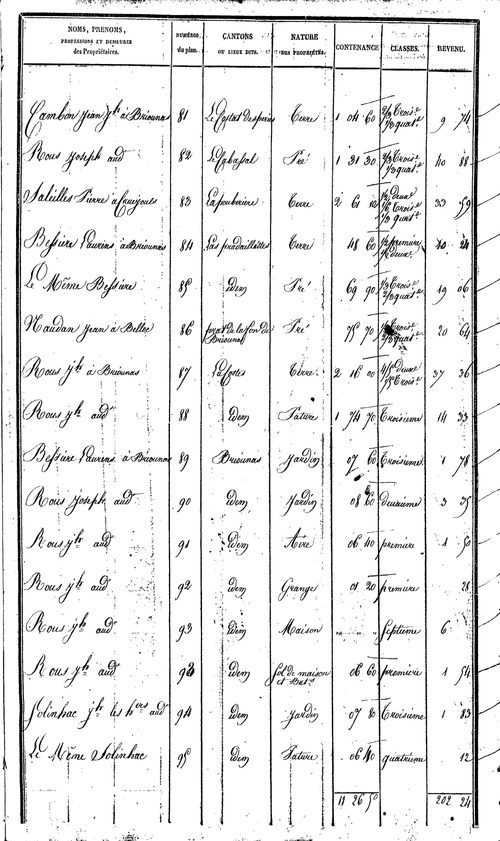 NOMS, PRENOMS,
PROFESSIONS ET DEMEURES
des Propriétaires.
NUMÉROS
du plan.
CANTONS
OU LIEUX DITS.
NATURE
DES PROPRIÉTÉS.
CONTENANCE
CLASSES.
REVENU.
Cambon Jean Jh à Briounas 81 Terre 1 04 60 2/3 trois.e 1/3 quat.e 9 74
Rous Joseph aud 82 Pré 1 31 30 40 88
Pierre 83 Terre 2 61 10 33 59
Bessière Laurens à Briounas 84 Las pradaillettes Terre 48 60 1/2 première 1/2 deux.e 24
Le Même Bessière 85 idem Pré 69 90 1/3 trois.e 2/3 quat.e 19 06
Naudan Jean à Bellec 86 Pré 75 70 20 64
Rous jh à Briounas 87 Terre 2 16 00 4/5 deux.e 1/5 trois.e 37 36
Rous jh aud 88 idem Pature 1 74 70 troisieme 14 33
Bessière Laurens à Briounas 89 Briounas Jardin 07 60 troisieme 1 78
Rous Joseph aud 90 idem Jardin 08 60 deuxieme 3 35
Rous jh aud 91 idem Aire 06 40 première 1 50
Rous jh aud 92 idem Grange 01 20 première 28
Rous jh aud 93 idem Maison " " " septieme 6
Rous jh aud 93 idem Sol de maison et Bat.s 06 60 première 1 54
Solinhac jh les hers aud 94 idem Jardin 07 80 troisieme 1 83
Le Même Solinhac 95 idem Pature 06 40 quatrieme 12
11 26 50 202 24